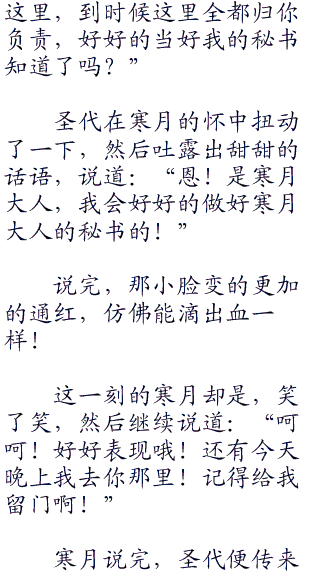 这里，到时候这里全都归你
负责，好好的当好我的秘书
知道了吗？”
圣代在寒月的怀中扭动
了一下，然后吐露出甜甜的
话语，说道：“恩！是寒月
大人，我会好好的做好寒月
大人的秘书的！”
说完，那小脸变的更加
的通红，仿佛能滴出血一
样！
这一刻的寒月却是，笑
了笑，然后继续说道：“呵
呵！好好表现哦！还有今天
晚上我去你那里！记得给我
留门啊！”
寒月说完，圣代便传来